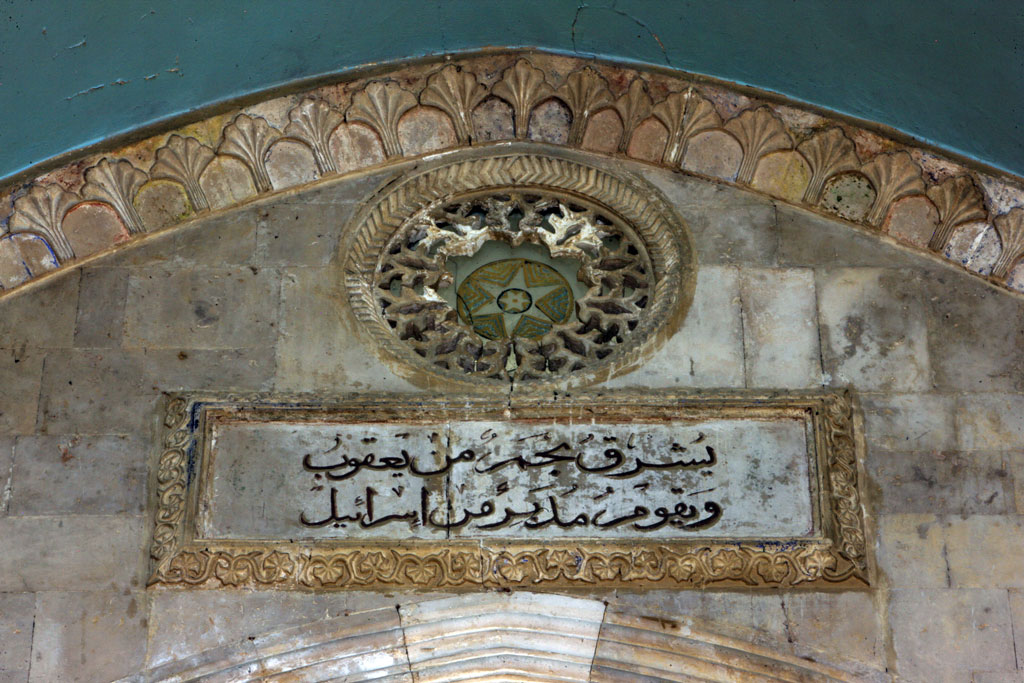 يُشرقُ نجمٌ من يَعقوبُ
ويَقومُ مُدبرٌ من إسرائيل